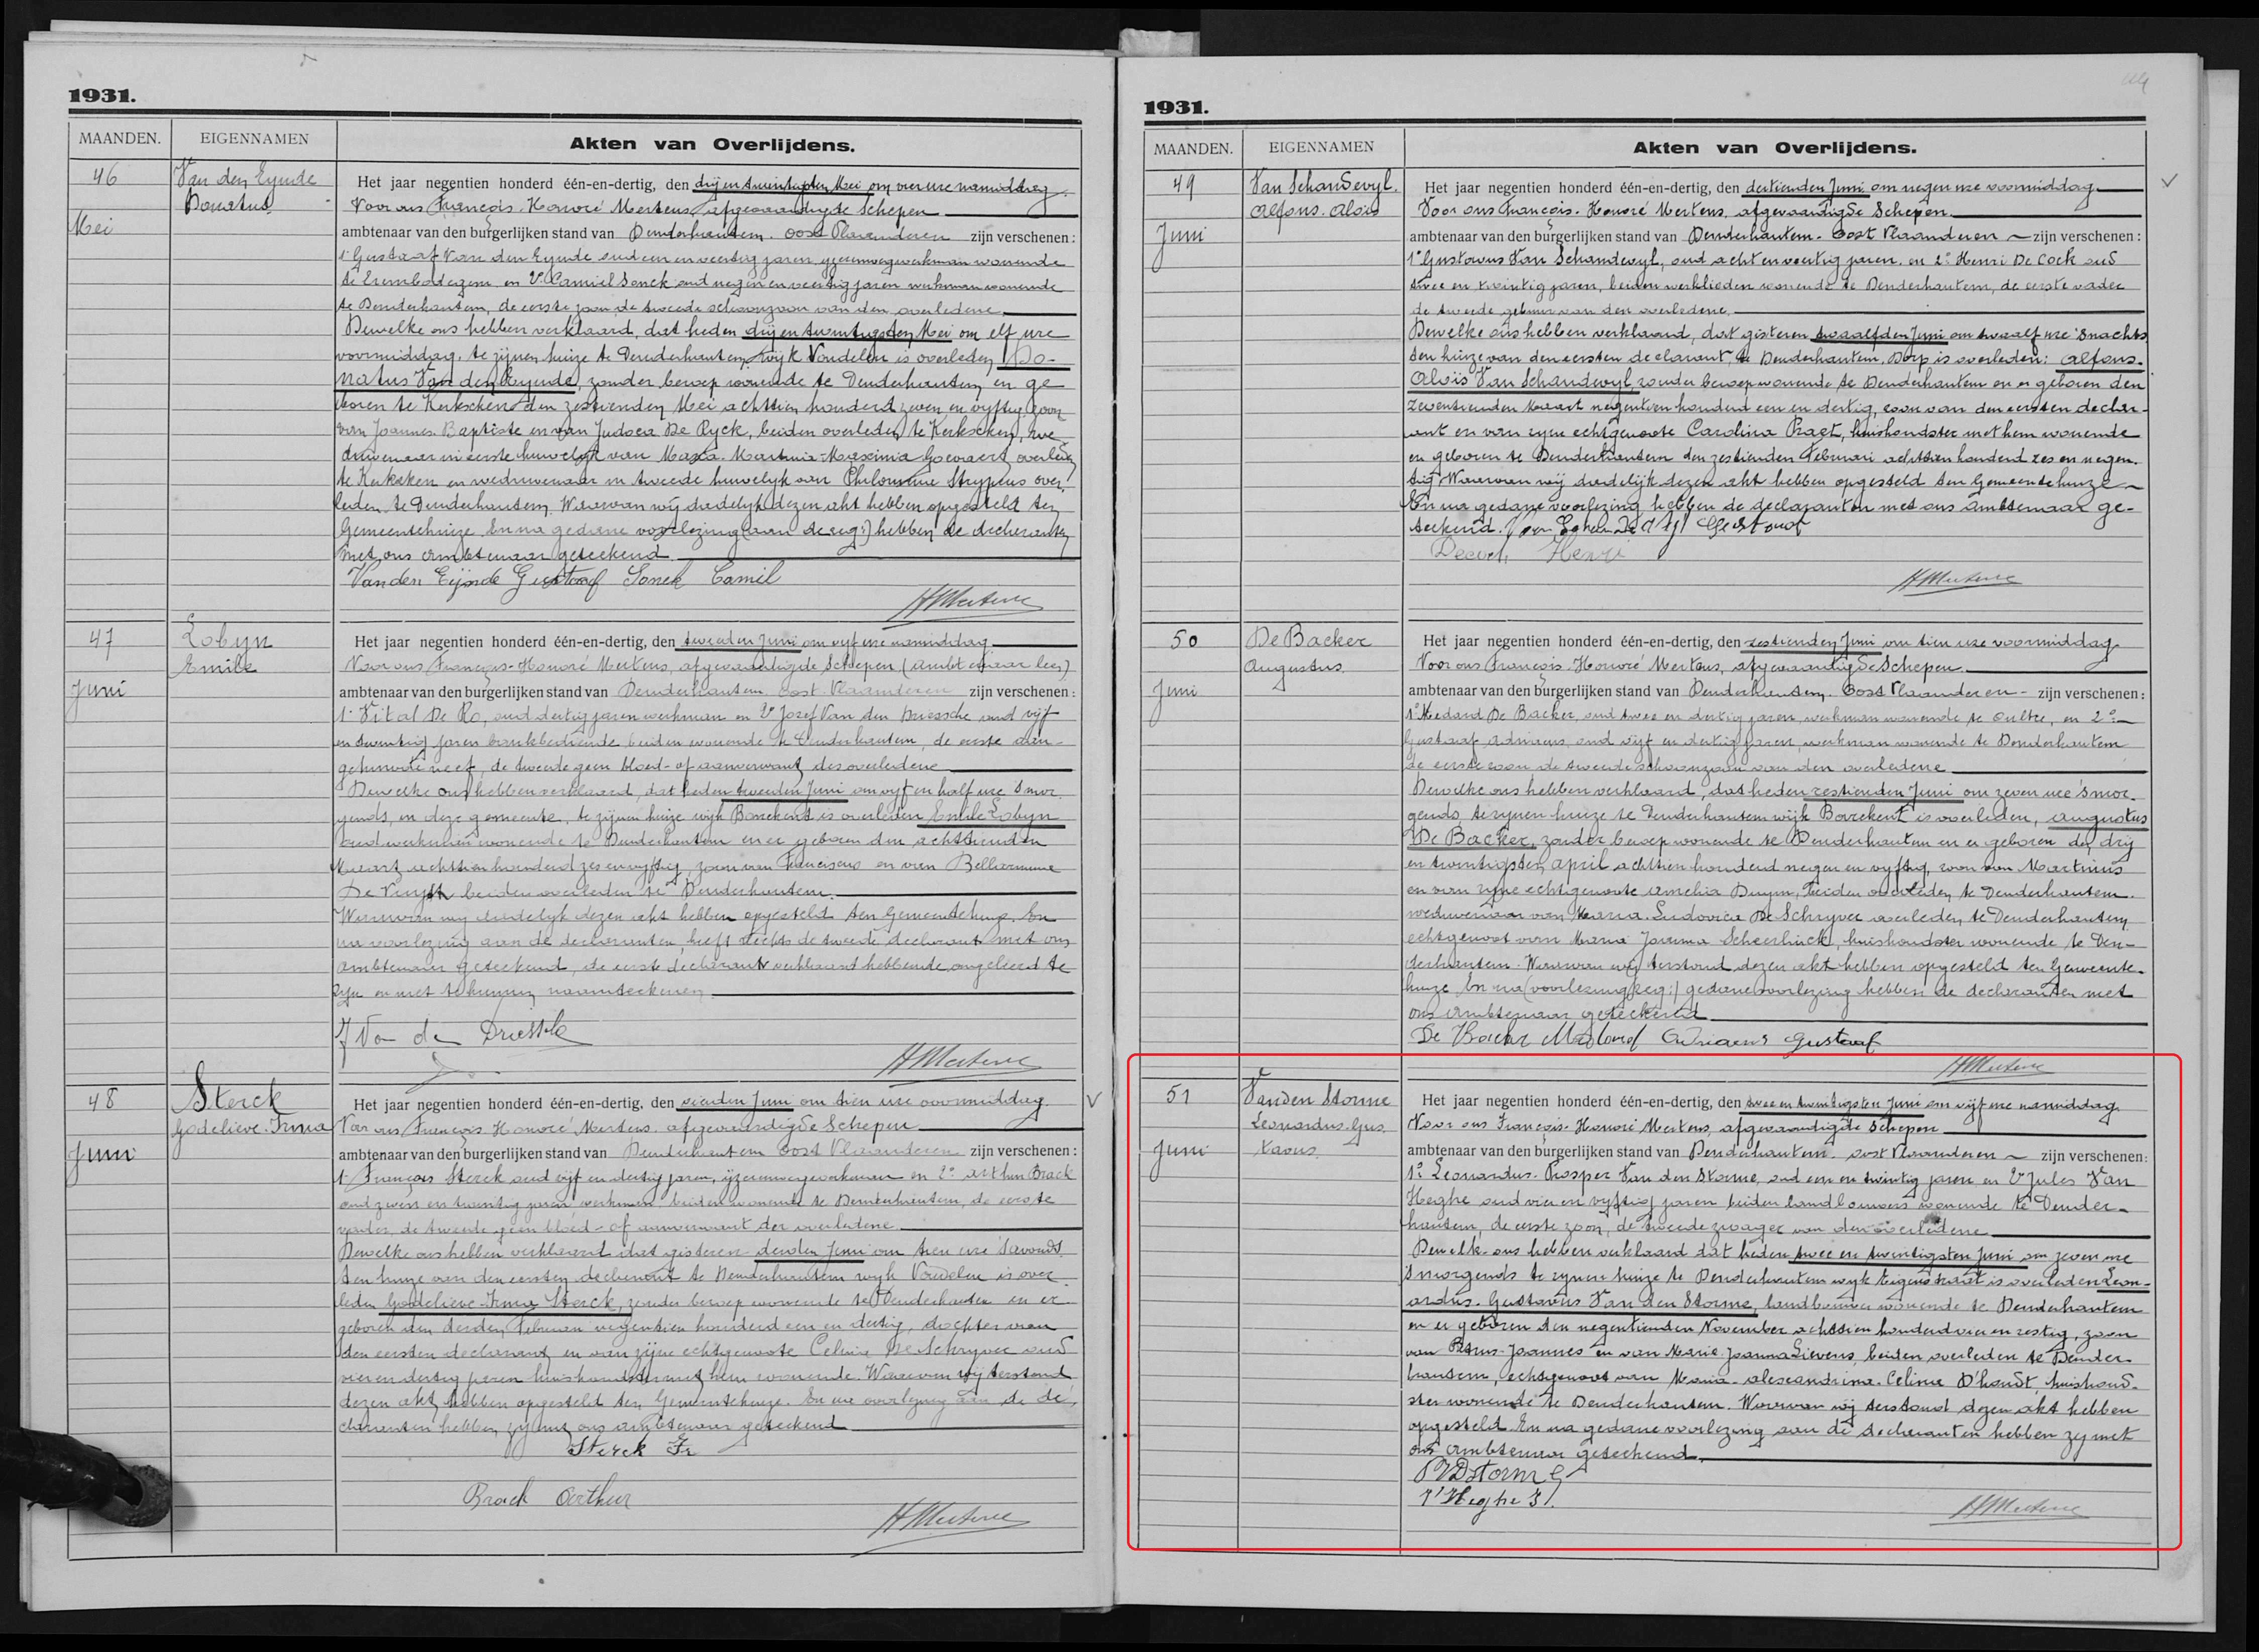 1931.
MAANDEN.
EIGENNAMEN
Akten van Overlijdens.
46
Mei
Van den Eynde
Donatus
Het jaar negentien honderd één-en-dertig, den drij en twintigsten Mei om vier ure namiddag.
Voor ons François-Honoré Mertens, afgevaardigde Schepen
ambtenaar van den burgerlijken stand van Denderhautem. Oost Vlaanderen zijn verschenen:
1º Gustaaf Van den Eynde oud een en veertig jaren, yzerenwegwerkman wonende
te Erembodegem en 2º Camiel Sonck oud negen en veertig jaren werkman wonende
te Denderhautem, de eerste zoon de tweede schoonzoon van den overledene
Dewelke ons hebben verklaard, dat heden drij en twintigsten Mei om elf ure
voormiddag, te zijnen huize te Denderhautem, wijk Vondelen is overleden Do-
natus Van den Eynde, zonder beroep wonende te Denderhautem en ge
boren te Kerksken den zestienden Mei achttien honderd zeven en vyftig, zoon
van Joannes-Baptiste en van Judoca De Ryck, beiden overleden te Kerksken, we
duwenaar in eerste huwelyk van Maria-Martinia-Maximia Goevaert overleden
te Kerksken en weduwenaar in tweede huwelyk van Philomene Strypens over
leden te Denderhautem. Waarvan wij dadelijk dezen akt hebben opgesteld ten
Gemeentehuize. En na gedane voorlezing (aan de reg:) hebben de declaranten
met ons ambtenaar geteekend
Van den Eijnde Gustaaf Sonck Camil
HMertens
47
Juni
Lobyn
Emile
Het jaar negentien honderd één-en-dertig, den tweeden Juni om vyf ure namiddag
Voor ons François-Honoré Mertens, afgevaardigde Schepen (ambtenaar leez)
ambtenaar van den burgerlijken stand van Denderhautem Oost Vlaanderen zijn verschenen:
1º Vital De Ro, oud dertig jaren werkman en 2º Jozef Van den Driessche oud vijf
en twintig jaren bankbediende beiden wonende te Denderhautem, de eerste aan-
gehuwde neef, de tweede geen bloed- of aanverwant des overledene
Dewelke ons hebben verklaard, dat heden tweeden Juni om vyf en half ure 's mor
gends, in deze gemeente, te zijnen huize wijk Borrekent is overleden Emile Lobyn
werkman wonende te Denderhautem en er geboren den achttienden
Maart achttien honderd zes en vyftig, zoon van Franciscus en van Bellarmine
De Vuyst beiden overleden te Denderhautem
Waarvan wij dadelyk dezen akt hebben opgesteld ten Gemeentehuize. En
na voorlezing aan de declaranten, heeft slechts de tweede declarant met ons
ambtenaar geteekend, de eerste declarant verklaard hebbende ongeleerd te
zijn en niet te kunnen naamteekenen
J Van den Driessche
HMertens
48
Juni
Sterck
Godelieve-Irma
Het jaar negentien honderd één-en-dertig, den vierden Juni om tien ure voormiddag.
Voor ons François Honoré Mertens, afgevaardigde Schepen
ambtenaar van den burgerlijken stand van Denderhautem Oost Vlaanderen zijn verschenen:
1º François Sterck oud vijf en dertig jaren, ijzerenwegwerkman en 2º Arthur Brack
oud zeven en twintig jaren werkman, beiden wonende te Denderhautem, de eerste
vader, de tweede geen bloed- of aanverwant der overledene
Dewelke ons hebben verklaard dat gisteren derden Juni om tien ure 's avonds.
ten huize van den eersten declarant te Denderhautem wyk Vondelen is over
leden Godelieve-Irma Sterck, zonder beroep wonende te Denderhautem en er
geboren den derden Februari negentien honderd een en dertig, dochter van
den eersten declarant en van zijne echtgenoote Celina De Schryver oud
vier en dertig jaren huishoudster met hem wonende. Waarvan wij terstond
dezen akt hebben opgesteld ten Gemeentehuize. En na voorlezing aan de de-
claranten hebben zij met ons ambtenaar geteekend
Sterck Fr
Brack Arthur
HMertens
1931.
MAANDEN.
EIGENNAMEN
Akten van Overlijdens.
49
Juni
Van Schandevyl.
Alfons-Aloïs
Het jaar negentien honderd één-en-dertig, den dertienden Juni om negen ure voormiddag
Voor ons François-Honoré Mertens, afgevaardigde Schepen
ambtenaar van den burgerlijken stand van Denderhautem. Oost Vlaanderen zijn verschenen:
1º Gustavus Van Schandevyl, oud acht en veertig jaren, en 2º Henri De Cock oud
twee en twintig jaren, beiden werklieden wonende te Denderhautem, de eerste vader
de tweede gebuur van den overledene.
Dewelke ons hebben verklaard, dat gisteren twaalfden Juni om twaalf ure 's nachts
ten huize van den eersten declarant, te Denderhautem, Dorp is overleden: Alfons-
Aloïs Van Schandevyl, zonder beroep wonende te Denderhautem en er geboren den
zeventienden Maart negentien honderd een en dertig, zoon van den eersten declar-
ant en van zijne echtgenoote Carolina Praet, huishoudster met hem wonende
en geboren te Denderhautem den zestienden Februari achttien honderd zes en negen-
tig. Waarvan wij dadelijk dezen akt hebben opgesteld ten Gemeentehuize
En na gedane voorlezing hebben de declaranten met ons ambtenaar ge-
teekend. Van Schandevyl Gustaaf
Decock Henri
HMertens
50
Juni
De Backer
Augustus.
Het jaar negentien honderd één-en-dertig, den zestienden Juni om tien ure voormiddag
Voor ons François-Honoré Mertens, afgevaardigde Schepen
ambtenaar van den burgerlijken stand van Denderhautem. Oost Vlaanderen zijn verschenen:
1º Medard De Backer, oud twee en dertig jaren, werkman wonende te Oultre, en 2º
Gustaaf Adriaens, oud vijf en dertig jaren, werkman wonende te Denderhautem
de eerste zoon de tweede schoonzoon van den overledene
Dewelke ons hebben verklaard, dat heden zestienden Juni om zeven ure 's mor-
gends, te zynen huize te Denderhautem wijk Borrekent is overleden, Augustus
De Backer, zonder beroep wonende te Denderhautem en er geboren den drij
en twintigsten April achttien honderd negen en vyftig, zoon van Martinus
en van zijne echtgenoote Amelia Duym, beiden overleden te Denderhautem.
weduwenaar van Maria-Ludovica De Schryver overleden te Denderhautem
echtgenoot van Maria Joanna Scheerlinck, huishoudster wonende te Den-
derhautem. Waarvan wij terstond dezen akt hebben opgesteld ten Gemeente-
huize. En na (voorlezing reg:) gedane voorlezing hebben de declaranten met
ons ambtenaar geteekend
De Backer Medard Adriaens Gustaaf
HMertens
51
Juni
Vanden Storme
Leonardus-Gus-
tavus.
Het jaar negentien honderd één-en-dertig, den twee en twintigsten Juni om vijf ure namiddag.
Voor ons François-Honoré Mertens, afgevaardigde Schepen
ambtenaar van den burgerlijken stand van Denderhautem. Oost Vlaanderen zijn verschenen:
1º Leonardus-Prosper Van den Storme, oud een en twintig jaren en 2º Jules Van
Heghe oud vier en vyftig jaren beiden landbouwers wonende te Dender-
hautem, de eerste zoon, de tweede zwager van den overledene
Dewelke ons hebben verklaard dat heden twee en twintigsten Juni om zeven ure
's morgends te zynen huize te Denderhautem wyk Eigenstraat is overleden Leon-
ardus-Gustavus Van den Storme, landbouwer wonende te Denderhautem
en er geboren den negentienden November achttien honderd vier en zestig, zoon
van Petrus-Joannes en van Marie-Joanna Lievens, beiden overleden te Dender-
hautem, echtgenoot van Maria-Alexandrina-Celina D'hondt, huishoud-
ster wonende te Denderhautem. Waarvan wij terstond dezen akt hebben
opgesteld. En na gedane voorlezing aan de declaranten hebben zij met
ons ambtenaar geteekend.
PVDstorme
V Heghe J.
HMertens